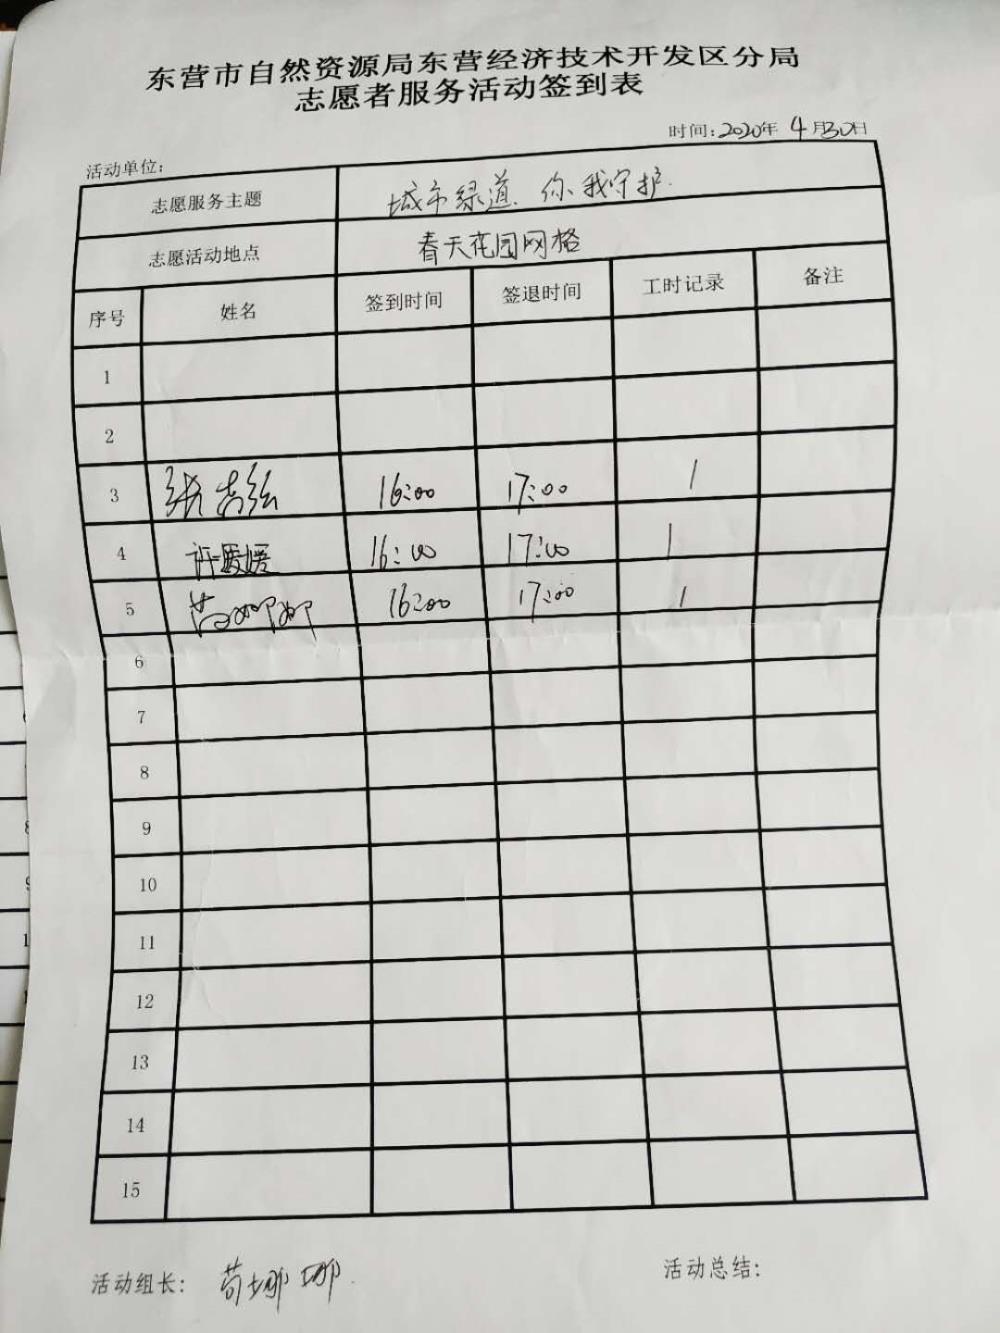 东营市自然资源局东营经济技术开发区分局
志愿者服务活动签到表
时间:2020年 4月30日
活动单位:
志愿服务主题 城市绿道、你我守护.
志愿活动地点 春天花园网格
序号 姓名 签到时间 签退时间 工时记录 备注
1
2
3 16:00 17:00 1
4 许媛媛 16:00 17:00 1
5 苟娜娜 16:00 17:00 1
6
7
8
9
10
11
12
13
14
15
活动组长: 苟娜娜. 活动总结: